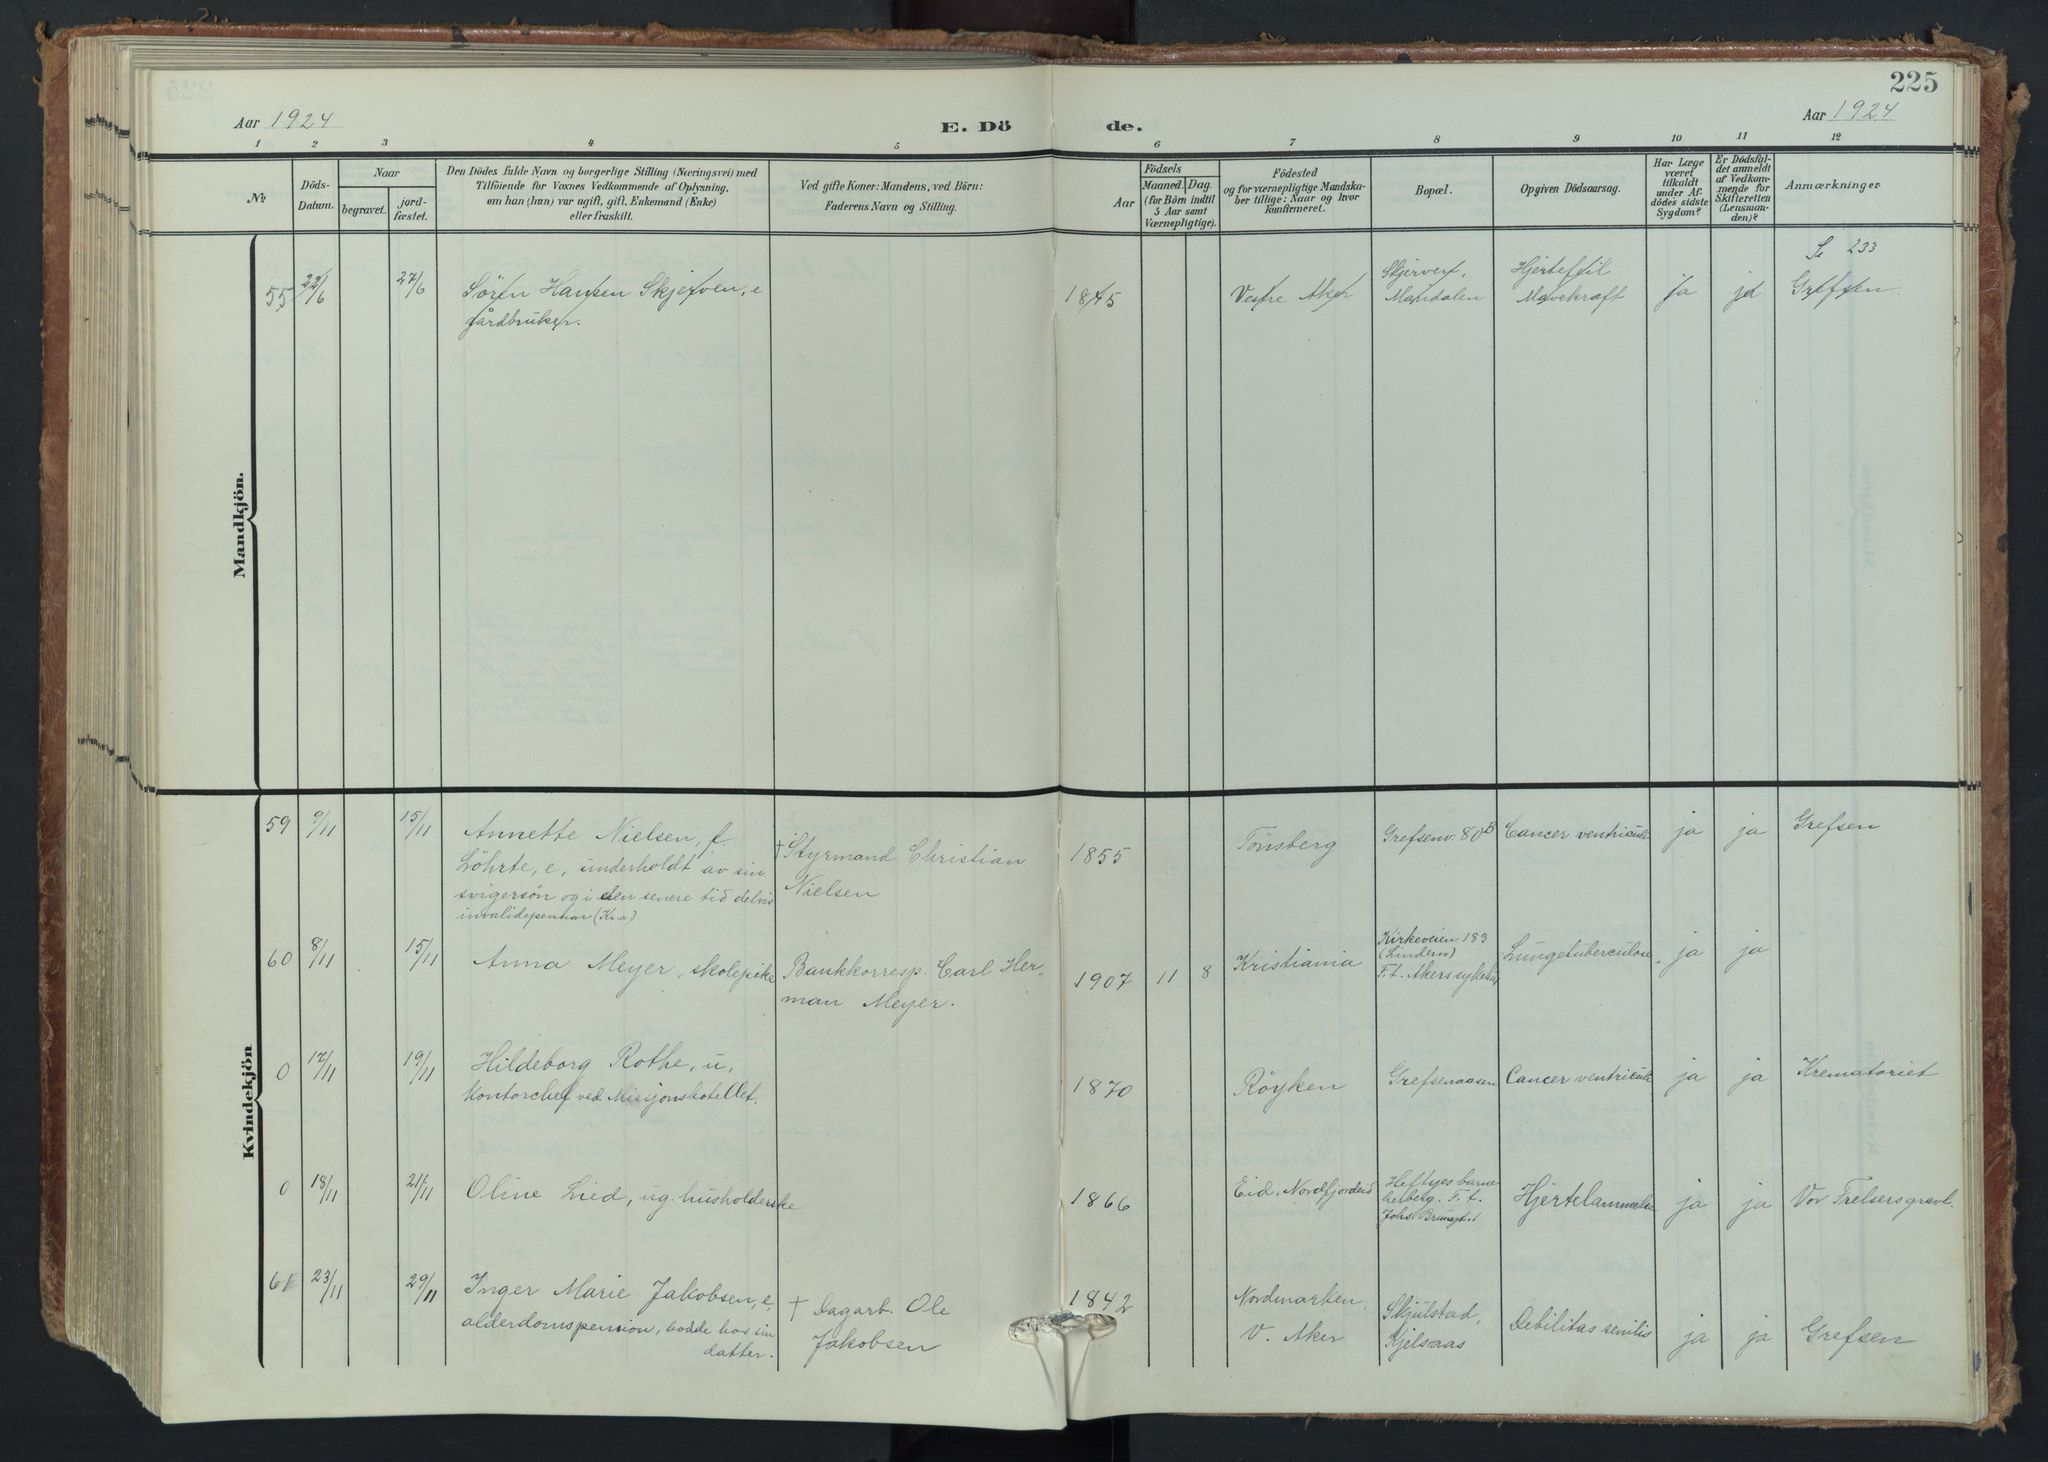 225
Aar 1924
E. Dö
de.
Aar 1924
1 2 3 4 5 6 7 8 9 10 11 12
No
Döds-
Datum.
Naar
begravet.
jord-
fæstet.
Den Dödes fulde Navn og borgerlige Stilling (Næringsvei) med
Tilföiende for Voxnes Vedkommende af Oplysning,
om han (hun) var ugift, gift, Enkemand (Enke)
eller fraskilt.
Ved gifte Koner: Mandens, ved Börn:
Faderens Navn og Stilling.
Födsels
Aar
Maaned. Dag.
(for Börn indtil
5 Aar samt
Værnepligtige).
Födested
og for værnepligtige Mandska-
ber tillige: Naar og hvor
konfirmeret.
Bopæl.
Opgiven Dödsaarsag.
Har Læge
været
tilkaldt
under Af-
dödes sidste
Sygdom?
Er Dödsfal-
det anmeldt
af Vedkom-
mende for
Skifteretten
(Lensman-
den)?
Anmærkninger
Mandkjön.
Se 233
55 22/6 27/6 Sören Hansen Skjerven, e
gårdbruker.
1845 Vestre Aker
Skjerven,
Maridalen
Hjertefeil
Mavekræft
ja ja Grefsen.
Kvindekjön
59 9/11 15/11 Annette Nielsen, f.
Löhrte, e, underholdt av sin
svigersön og i den senere tid delvis
invalidepension (Kra)
† Styrmand Christian
Nielsen
1855 Tönsberg Grefsenv. 80B Cancer ventriculi ja ja Grefsen
60 8/11 15/11 Anna Meyer, skolepike
Bankkorresp. Carl Her-
man Meyer.
1907 11 8 Kristiania
Kirkeveien 183
(Lindern)
F.t. Akers sykehus
Lungetuberculose ja ja
0 17/11 19/11 Hildeborg Rothe, u,
Kontorchef ved Missjonshotellet.
1870 Röyken Grefsenaasen Cancer ventriculi ja ja Krematoriet
0 18/11 21/11 Oline Lied, ug. husholderske
1866 Eid, Nordfjordeid
Heftyes barne
herberg. F.t.
Hjertelammelse ja ja Vor Frelsers gravl.
61 23/11 29/11 Inger Marie Jakobsen, e,
alderdomspension, bodde hos sin
datter.
† Dagarb. Ole
Jakobsen
1842 Nordmarken
V. Aker
Skjulstad,
Kjelsaas
Debilitas senilis ja ja Grefsen